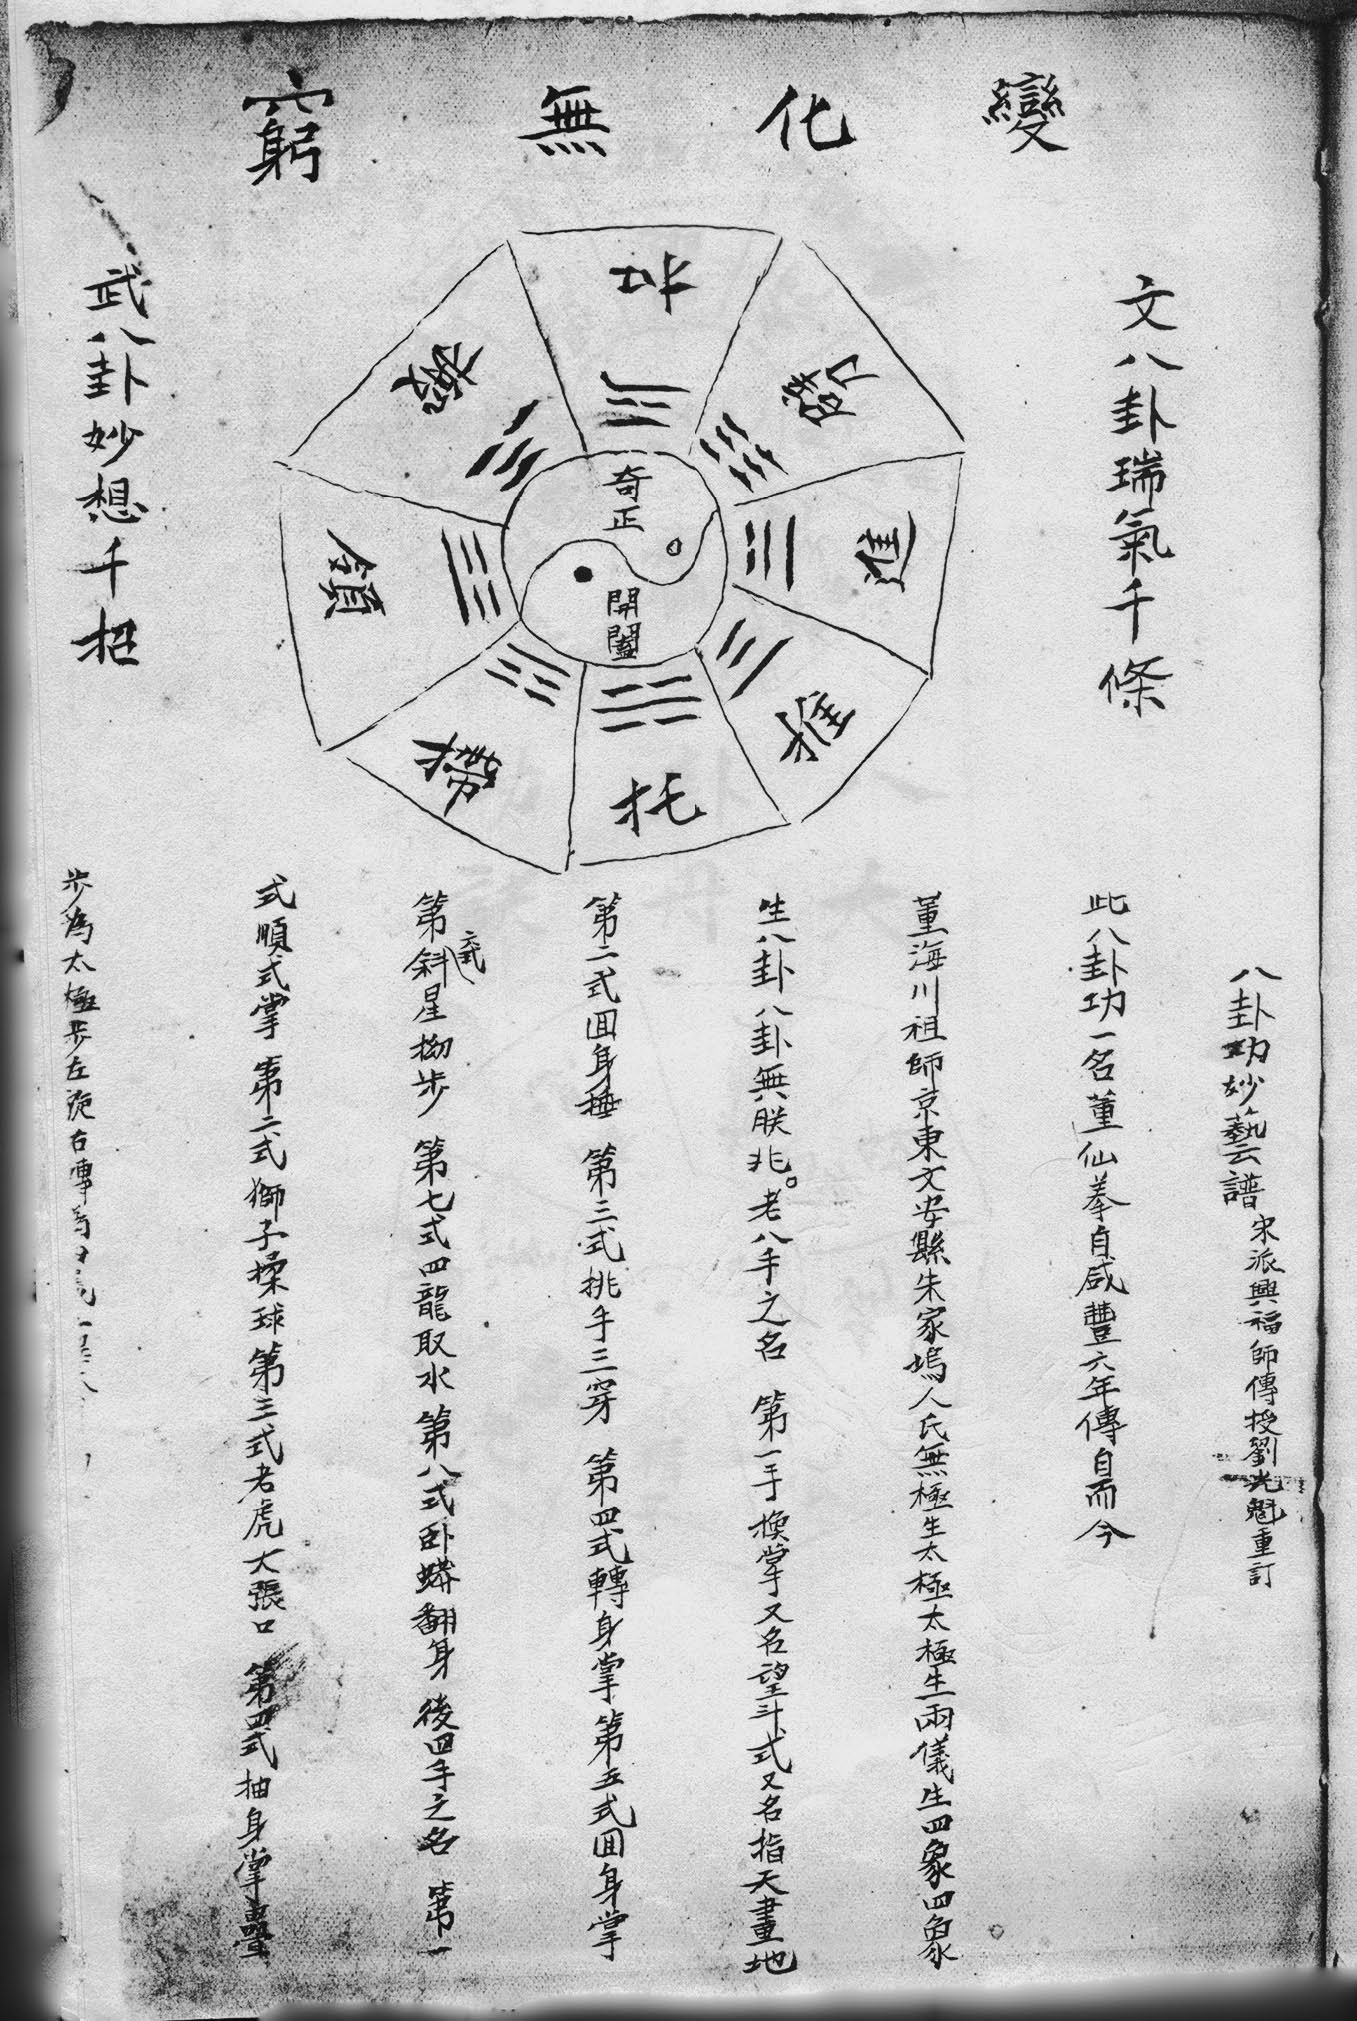 變化無窮
文八卦瑞氣千條
武八卦妙想千招
扣
進
推
托
帶
領
搬
奇正
開闔
八卦功妙藝譜 宋派興福師傳授劉光魁重訂
此八卦功一名董仙拳自咸豐六年傳自而今
董海川祖師京東文安縣朱家塢人氏無極生太極太極生兩儀生四象四象
生八卦八卦無朕兆。老八手之名 第一手換掌又名望斗式又名指天畫地
第二式回身捶 第三式挑手三穿 第四式轉身掌 第五式回身掌
第六式斜星拗步 第七式四龍取水 第八式卧蟒翻身 後四手之名 第一
式順式掌 第二式獅子揉球 第三式老虎大張口 第四式抽身掌疊
步為太極步左旋右轉為